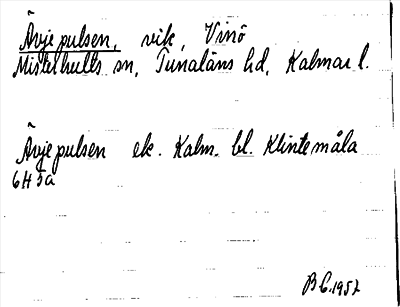 Ävjepulsen, vik, Vinö
Misterhults sn, Tunaläns hd, Kalmar l.
Ävjepulsen ek. Kalm. bl. Klintemåla
6H 5a
B C. 1957